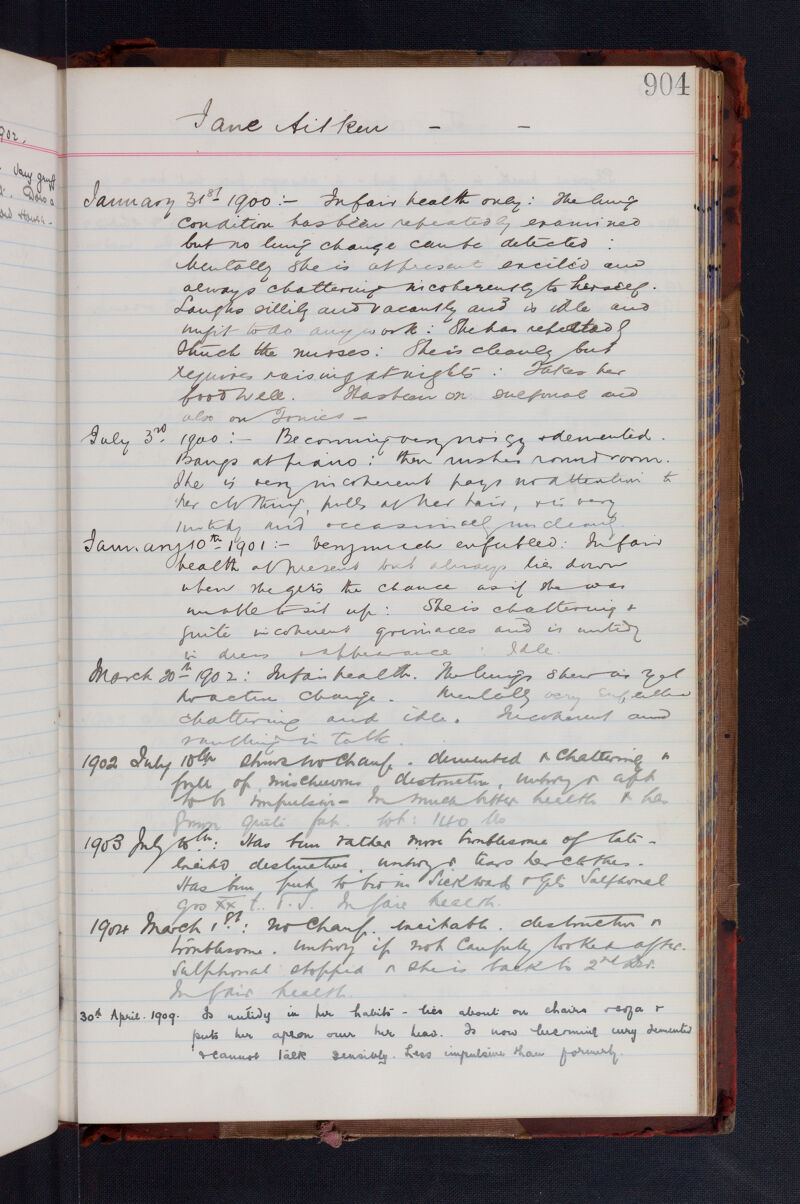 904
Jane Aitken - -
January 31st 1900 :- In fair health only : The lung
condition has been repeatedly examined
but no lung change can be detected :
Mentally she is at present excited and
always chattering incoherently to herself.
Laughs sillily and vacantly and is idle and
unfit to do any work : She has repeatedly
struck the nurses : She is cleanly but
requires raising at nights : Takes her
food well. Has been on sulfonal and
also on Tonics -
July 3rd 1900 :- Becoming very noisy & demented.
Bangs at piano : then rushes round room.
She is very incoherent pays no attention to
her clothing, pulls at her hair, & is very
untidy and occasionally uncleanly.
January 10th 1901 :- Very much enfeebled : In fair
health at present but always lies down
when she gets the chance as if she was
unable to sit up : She is chattering &
quite incoherent grimaces and is untidy
in dress & appearance : Idle.
March 20th 1902 : In fair health. The lungs shew as yet
no active change. Mentally very enfeebled
chattering and idle. Incoherent and
rambling in talk.
1902 July 10th shows no change. demented & chattering &
full of mischievous destructive, untidy & apt
to be impulsive - In much better health & has
grown quite fat. wt : 140 lbs
1903 July : Has been rather more troublesome of late -
excited destructive untidy & tears her clothes.
Has been put to bed in Sick ward & gets Sulphonal
grs xx t. i. d. In fair health.
1904 March 1st : No change. excitable. destructive &
troublesome. untidy if not carefully looked after.
Sulphonal stopped & she is back to 2nd
In fair health.
30th April. 1909. Is untidy in her habits - lies about on chairs & sofa &
puts her apron over her head. Is now becoming very demented
& cannot talk sensibly. Less impulsive than formerly.